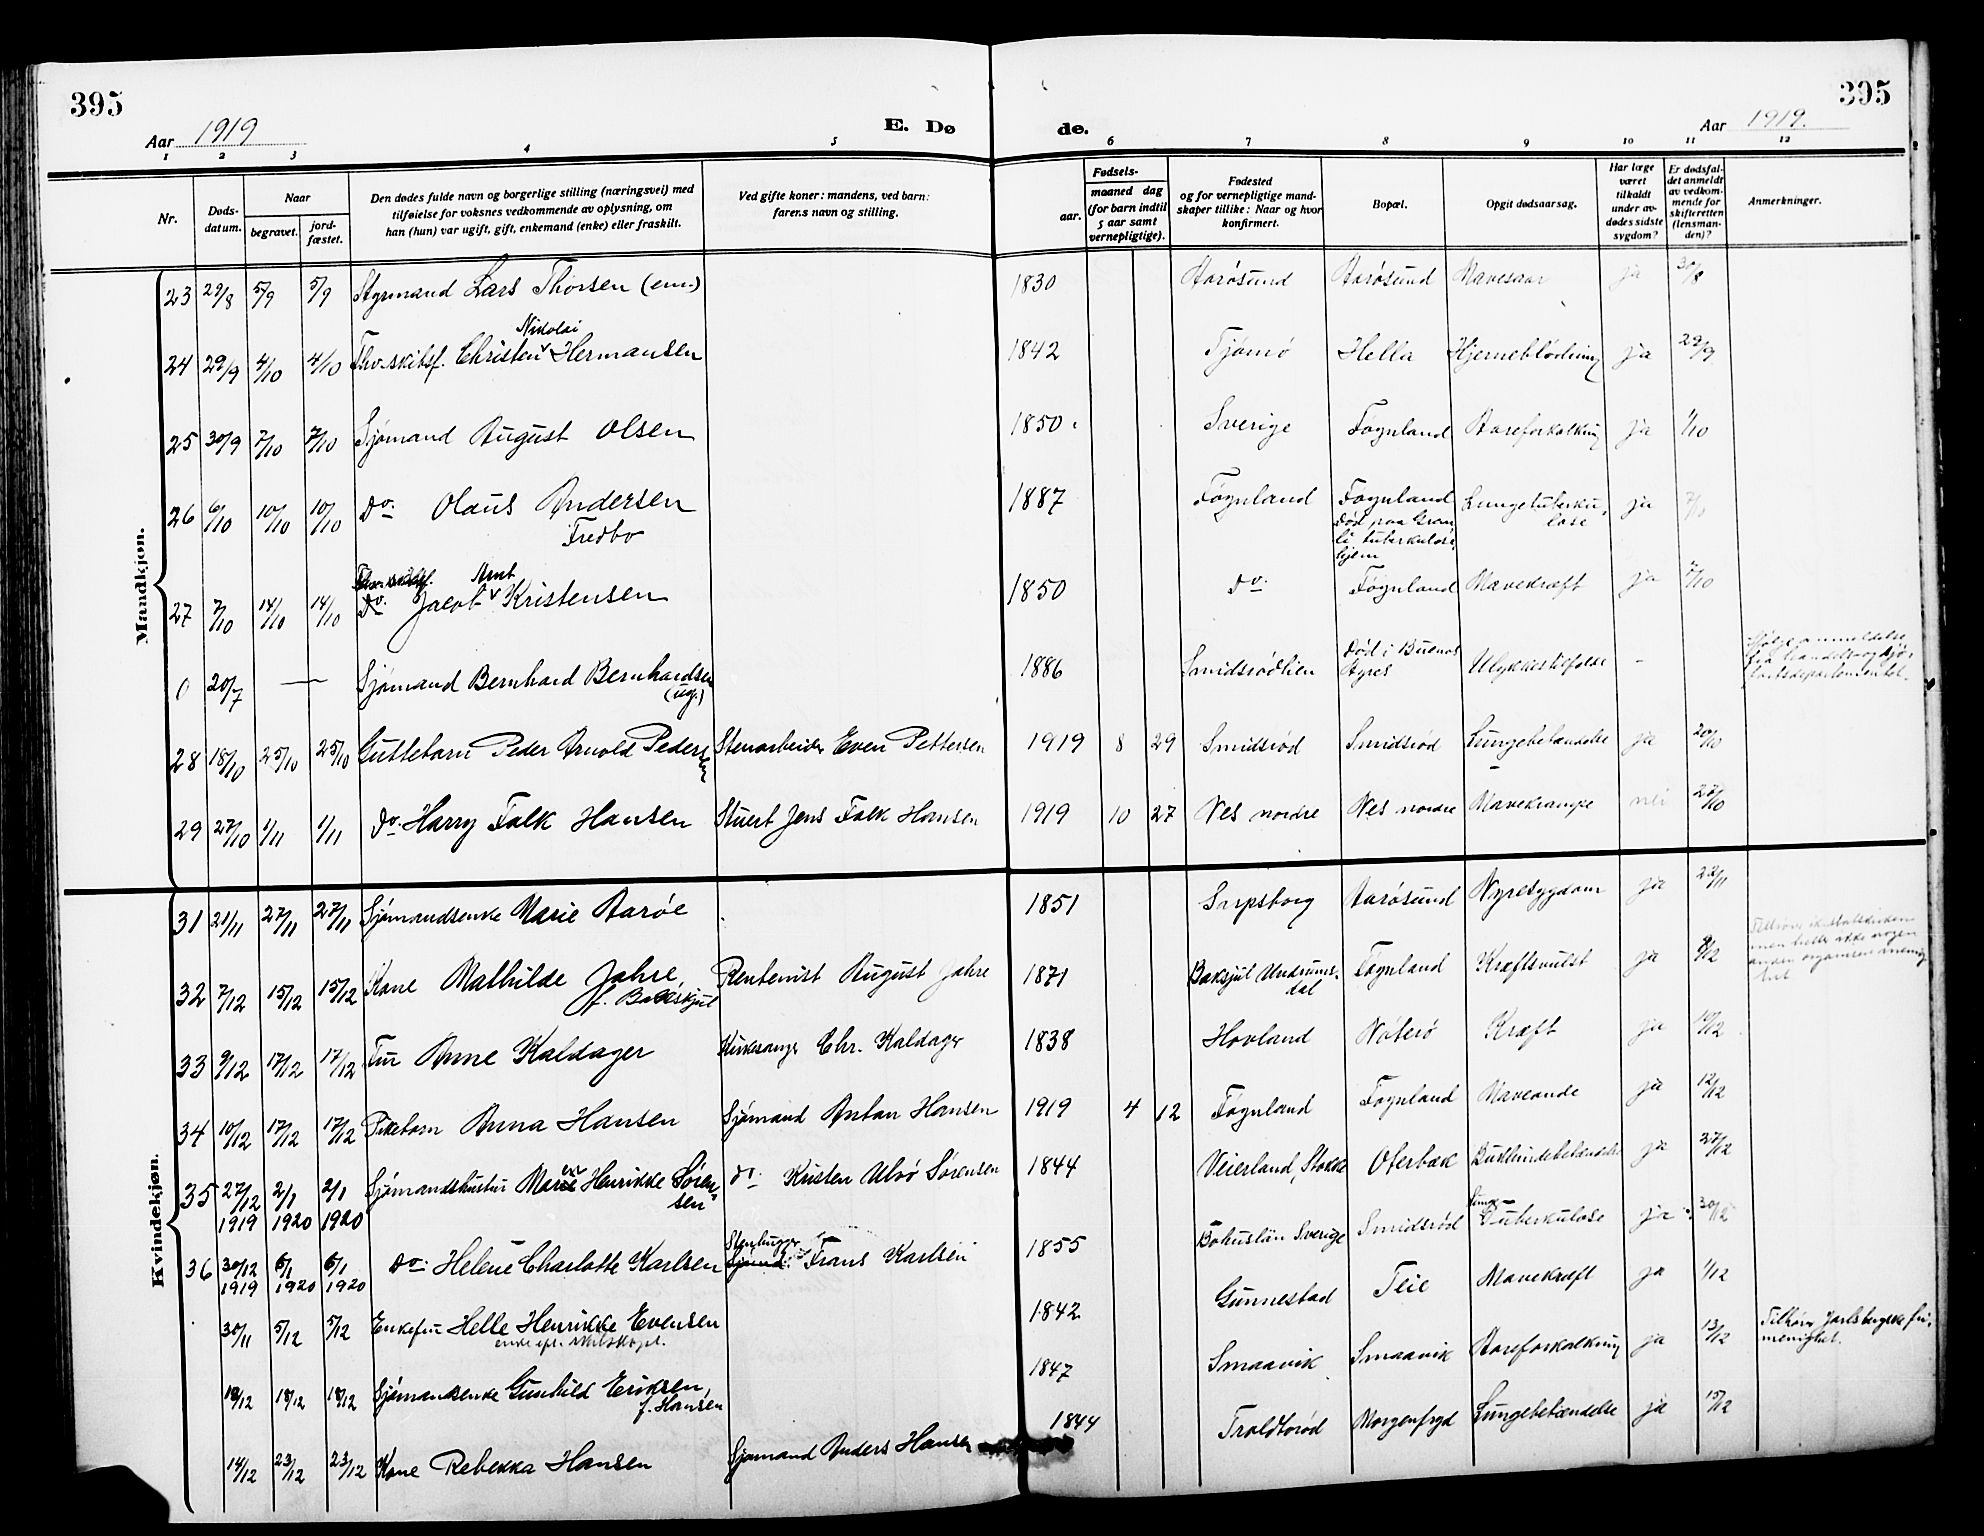 395
395
Aar 1919
E. Dø
de.
Aar 1919.
1 2 3 4 5 6 7 8 9 10 11 12
Nr.
Døds-
datum.
Naar
begravet.
jord-
fæstet.
Den dødes fulde navn og borgerlige stilling (næringsvei) med
tilføielse for voksnes vedkommende av oplysning, om
han (hun) var ugift, gift, enkemand (enke) eller fraskilt.
Ved gifte koner: mandens, ved barn:
farens navn og stilling.
Fødsels-
aar.
maaned dag
(for barn indtil
5 aar samt
vernepligtige).
Fødested
og for vernepligtige mand-
skaper tillike: Naar og hvor
konfirmert.
Bopæl.
Opgit dødsaarsag.
Har læge
været
tilkaldt
under av-
dødes sidste
sygdom?
Er dødsfal-
det anmeldt
av vedkom-
mende for
skifteretten
(lensman-
den)?
Anmerkninger.
Mandkjøn.
23 29/8 5/9 5/9 Styrmand Lars Thorsen (em.) 1830 Aarøsund Aarøsund Mavesaar ja 30/8
Nikolai
24 29/9 4/10 4/10 Fhv. skibsf. Christen Hermansen 1842 Tjømø Hella Hjerneblødning ja 29/9
25 30/9 7/10 7/10 Sjømand August Olsen 1850 Sverige Føgnland Aareforkalkning ja 1/10
26 6/10 10/10 10/10 do. Olaus Andersen 1887 Føgnland Føgnland Lungetuberku- ja 7/10
Fredbo
død paa Gran- lose
li tuberkulose-
hjem
Fhv. skibsf. Arnt
27 7/10 14/10 14/10 do. Jacob Kristensen 1850 do. Føgnland Mavekræft ja 7/10
0 20/7 — Sjømand Bernhard Bernhardsen 1886 Smidsrødlien død i Buenos Ulykkestilfelse -
(ug.) Ayres
28 18/10 25/10 25/10 Guttebarn Peder Arnold Pedersen Stenarbeider Even Pettersen 1919 8 29 Smidsrød Smidsrød Lungebetændelse ja 20/10
29 27/10 1/11 1/11 do. Harry Falk Hansen Stuert Jens Falk Hansen 1919 10 27 Nes nordre Nes nordre Mavekrampe nei 27/10
Kvindekjøn.
31 21/11 27/11 27/11 Sjømandsenke Marie Aarøe 1851 Sarpsborg Aarøsund Nyresygdom ja 22/11
32 7/12 15/12 15/12 Kone Mathilde Jahre, Rentenist August Jahre 1871 Baksjul Undrums- Føgnland Kræftsvulst ja 9/12
f. Bakskjul dal
33 9/12 17/12 17/12 Fru Anne Kaldager Kirkesanger Chr. Kaldager 1838 Hovland Nøterø Kræft ja 10/12
34 10/12 17/12 17/12 Pikebarn Anna Hansen Sjømand Anton Hansen 1919 4 12 Føgnland Føgnland Maveonde ja 12/12
35 27/12 2/1 2/1 Sjømandshustru Maren Henrikke Søren- do. Kristen Ulvø Sørensen 1844 Veierland, Stokke Oterbæk Bukhindebetændelse ja 27/12
1919 1920 1920 sen
36 30/12 6/1 6/1 do. Helene Charlotte Karlsen Stenhugger Frans Karlsen 1855 Bohuslän Sverige Smidsrød Lunge-Tuberkulose ja 30/12
1919 1920 1920
30/11 5/12 5/12 Enkefru Helle Henrikke Evensen 1842 Gunnestad Teie Mavekræft ja 1/12
enke eft. skibskapt.
18/12 18/12 Sjømandsenke Gunhild Eriksen, 1847 Smaavik Smaavik Aareforkalkning ja 13/12 Tilhører Jarlsbergske fri-
f. Hansen menighet.
14/12 23/12 23/12 Kone Rebekka Hansen Sjømand Anders Hansen 1844 Troldtorød Morgenfryd Lungebetændelse ja 15/12